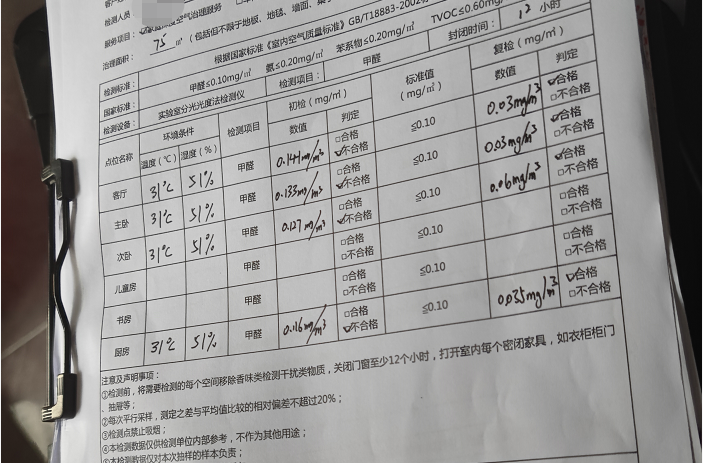 检测人员
服务项目：空气治理服务
治理面积： 75 ㎡（包括但不限于地板、地毯、墙面、
检测标准： 根据国家标准《室内空气质量标准》GB/T18883-2002
国家标准： 甲醛≤0.10mg/㎥ 氨≤0.20mg/㎥ 苯系物≤0.20mg/㎥ TVOC≤0.60mg/
检测设备： 实验室分光光度法检测仪 检测项目： 甲醛 封闭时间： 12 小时
点位名称 环境条件 检测项目 初检（mg/㎥） 标准值 复检（mg/㎥）
温度（℃） 湿度（%） 数值 判定 （mg/㎥） 数值 判定
客厅 31℃ 51% 甲醛 0.141mg/m³ □合格 ☑不合格 ≤0.10 0.03mg/m³ ☑合格 □不合格
主卧 31℃ 51% 甲醛 0.133mg/m³ □合格 ☑不合格 ≤0.10 0.03mg/m³ ☑合格 □不合格
次卧 31℃ 51% 甲醛 0.127mg/m³ □合格 ☑不合格 ≤0.10 0.06mg/m³ ☑合格 □不合格
儿童房 甲醛 □合格 □不合格 ≤0.10 □合格 □不合格
书房 甲醛 □合格 □不合格 ≤0.10 □合格 □不合格
厨房 31℃ 51% 甲醛 0.116mg/m³ □合格 ☑不合格 ≤0.10 0.035mg/m³ ☑合格 □不合格
注意及声明事项：
①检测前，将需要检测的每个空间移除香味类检测干扰类物质，关闭门窗至少12个小时，打开室内每个密闭家具，如衣柜柜门
、抽屉等；
②每次平行采样，测定之差与平均值比较的相对偏差不超过20%；
③检测点禁止吸烟；
④本检测数据仅供检测单位内部参考，不作为其他用途；
⑤本检测数据仅对本次抽样的样本负责；